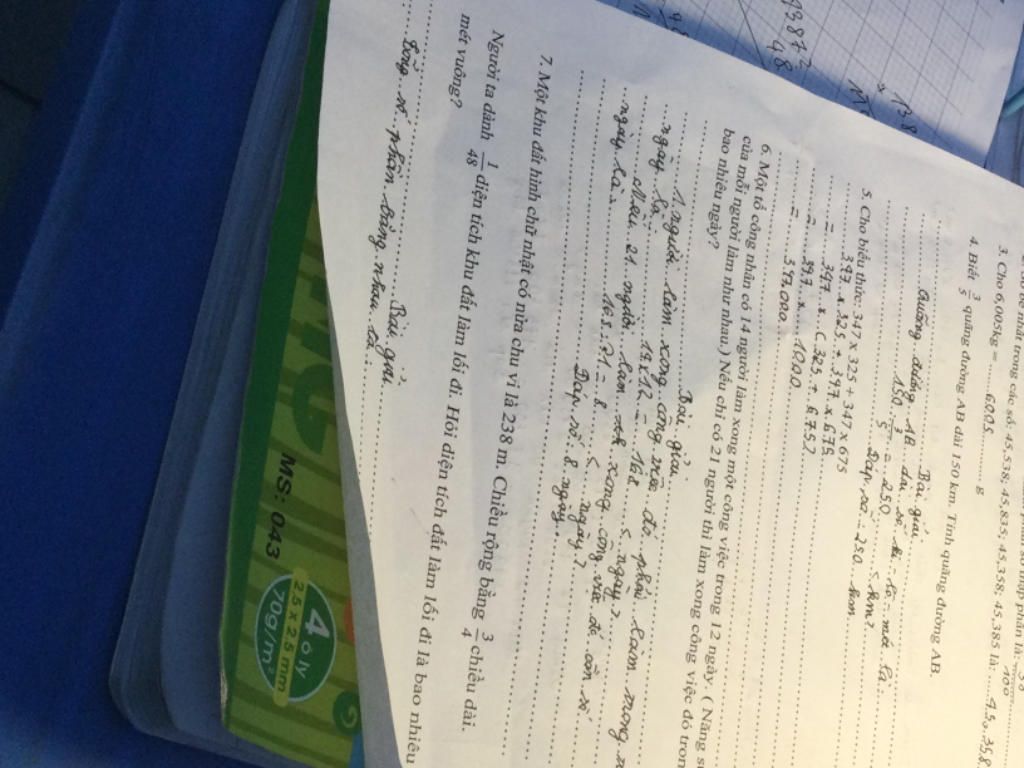 số bé nhất trong các số: 45,538; 45,835; 45,358; 45,385 là: ...45,358
3. Cho 6,005kg = ......6005.............. g
4. Biết 3/5 quãng đường AB dài 150 km. Tính quãng đường AB.
Bài giải
Quãng đường AB dài số
150 : 3/5 = 250 ( km )
Đáp số: 250 km.
5. Cho biểu thức: 347 x 325 + 347 x 675
347 x 325 + 347 x 675
= 347 x ( 325 + 675 )
= 347 x 1000
= 347.000
6. Một tổ công nhân có 14 người làm xong một công việc trong 12 ngày ( Năng
của mỗi người làm như nhau.) Nếu chỉ có 21 người thì làm xong công việc đó
bao nhiêu ngày?
Bài giải
1 người làm xong công việc đó phải làm trong
ngày là
14 x 12 = 168 ( ngày )
Nếu 21 người làm xong công việc đó cần số
ngày là
168 : 21 = 8 ( ngày )
Đáp số 8 ngày.
7. Một khu đất hình chữ nhật có nửa chu vi là 238 m. Chiều rộng bằng 3/4 chiều dài.
Người ta dành 1/48 diện tích khu đất làm lối đi. Hỏi diện tích đất làm lối đi là bao nhiêu
mét vuông?
Bài giải
Tổng số phần bằng nhau là
MS: 043
4 ô ly
2.5 x 2.5 mm
70g/m²
13872
48
138